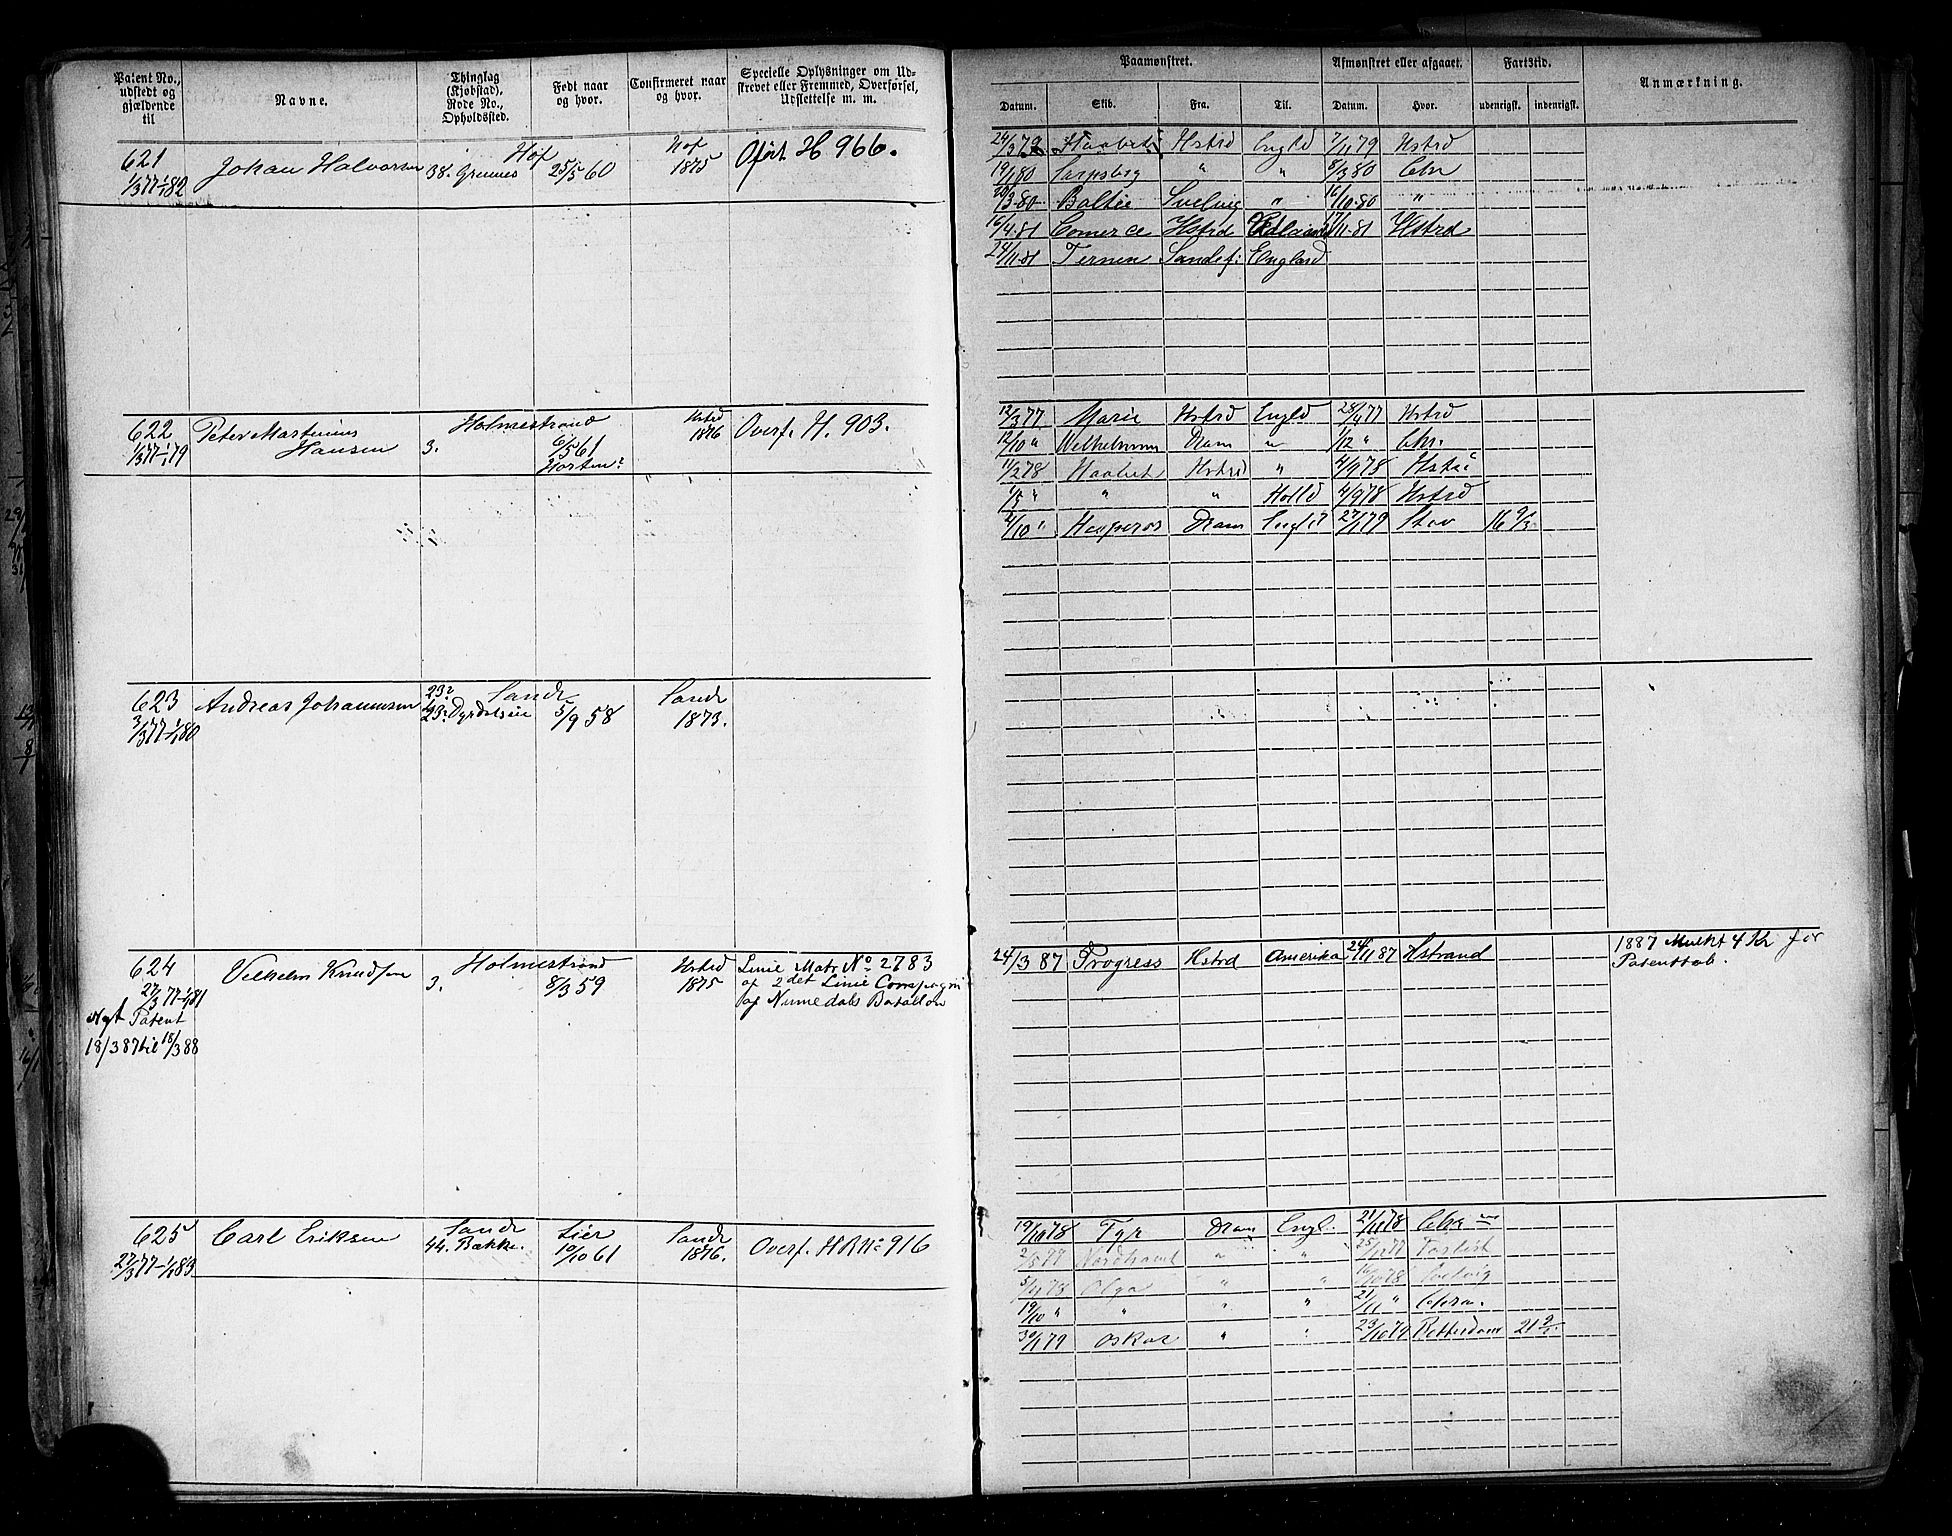 Patent No., udstedt og gjældende til
Navne.
Thinglag (Kjøbstad), Rode No., Opholdssted.
Født naar og hvor.
Confirmeret naar og hvor.
Specielle Oplysninger om Udskrevet eller Fremmed, Overførsel, Udslettelse m. m.
Paamønstret.
Afmønstret eller afgaaet.
Fartstid.
Anmærkning.
Datum. Skib. Fra. Til. Datum. Hvor. udenrigsk. indenrigsk.
621 Johan Halvorsen Hof Hof
1/3 77-1/1 82 38. Grennes 25/5 60 1875 Oført H 966.
24/3 79 Haabet Hstrd Engld 7/11 79 Hstrd
19/1 80 Sarpsborg " " 8/3 80 Chr
20/3 80 Baltic Svelvig " 16/10 80 "
16/4 81 Comerce Hstrd 17/11 81 Hstrd
24/11 81 Ternen Sandef: England
622 Peter Martinius Hansen Holmestrand Hstrd
1/3 77-1/1 79 3. 6/5 61 Horten: 1876 Overf. H. 903.
12/3 77 Marie Hstrd Engld 28/4 77 Hstrd
12/10 " Wilhelmine Dram " 1/12 " Chr.
1/2 78 Haabet Hstrd " 4/4 78 Hstrd
1/5 " " " Holld 4/9 78 Hstrd
2/10 " Dram Engld 27/1 79 Stav 16
623 Andreas Johannesen 23. Sande Sande
3/3 77-1/1 80 5/9 58 1873.
624 Vilhelm Knudsen Holmestrand Hstrd Linie Matr No 2783
27/3 77-1/1 81 3. 8/3 59 1875 af 2det Linie Compagni
Nyt Patent af Numedals Bataillon
18/3 87 til 18/3 88
24/3 87 Progress Hstrd Amerika 24/11 87 Hstrand 1887 Mulkt 4 Kr for
Patenttab.
625 Carl Eriksen Sande Lier Sande
27/3 77-1/1 83 44. Bakke. 10/10 61 1876. Overf. H R No 916
19/10 78 Tyr Dram Engl. 21/11 78 Chra
2/5 77 " " 25/11 77
5/4 78 Olga " " 16/10 78 Svelvig
19/10 " " " " 21/11 " Chra.
30/1 79 Oskar " " 23/10 79 Rotterdam 21